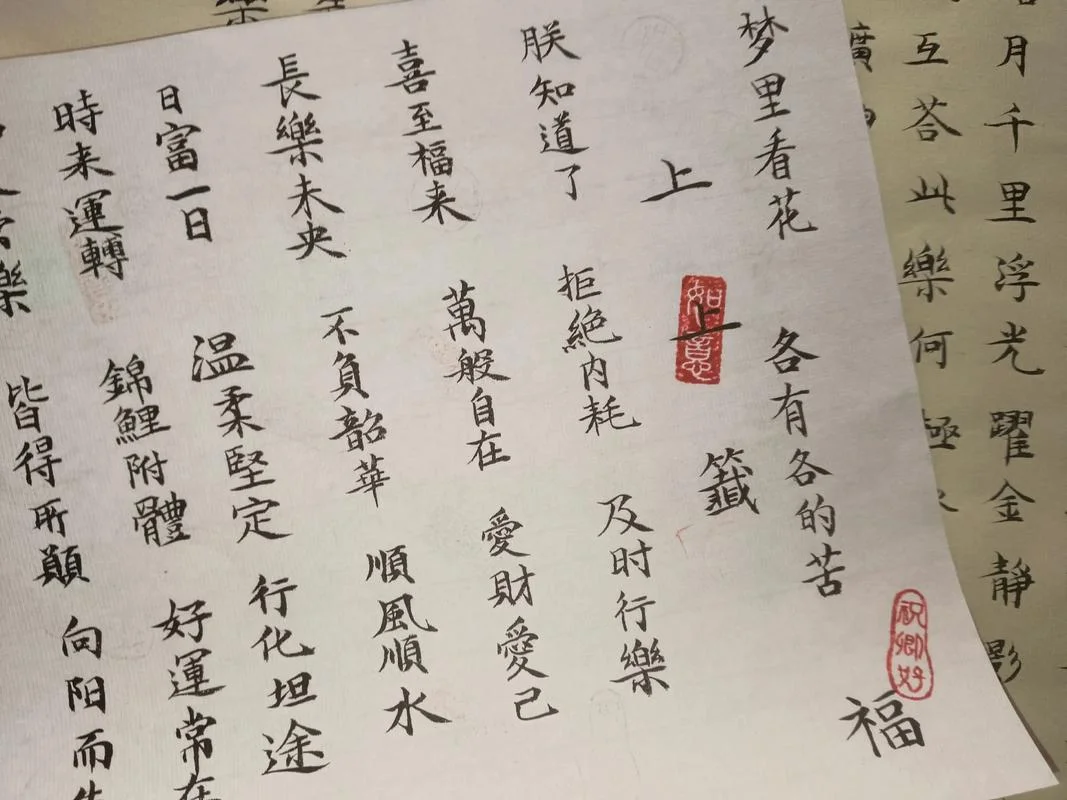 月千里浮光躍金靜影
互荅此樂何極
廣
梦里看花 各有各的苦
祝卿好
福
上上籤
如意
朕知道了 拒絶内耗 及时行樂
喜至福来 萬般自在 愛財愛己
長樂未央 不負韶華 順風順水
日富一日 温柔堅定 行化坦途
時来運轉 錦鯉附體 好運常在
樂 皆得所願 向阳而生